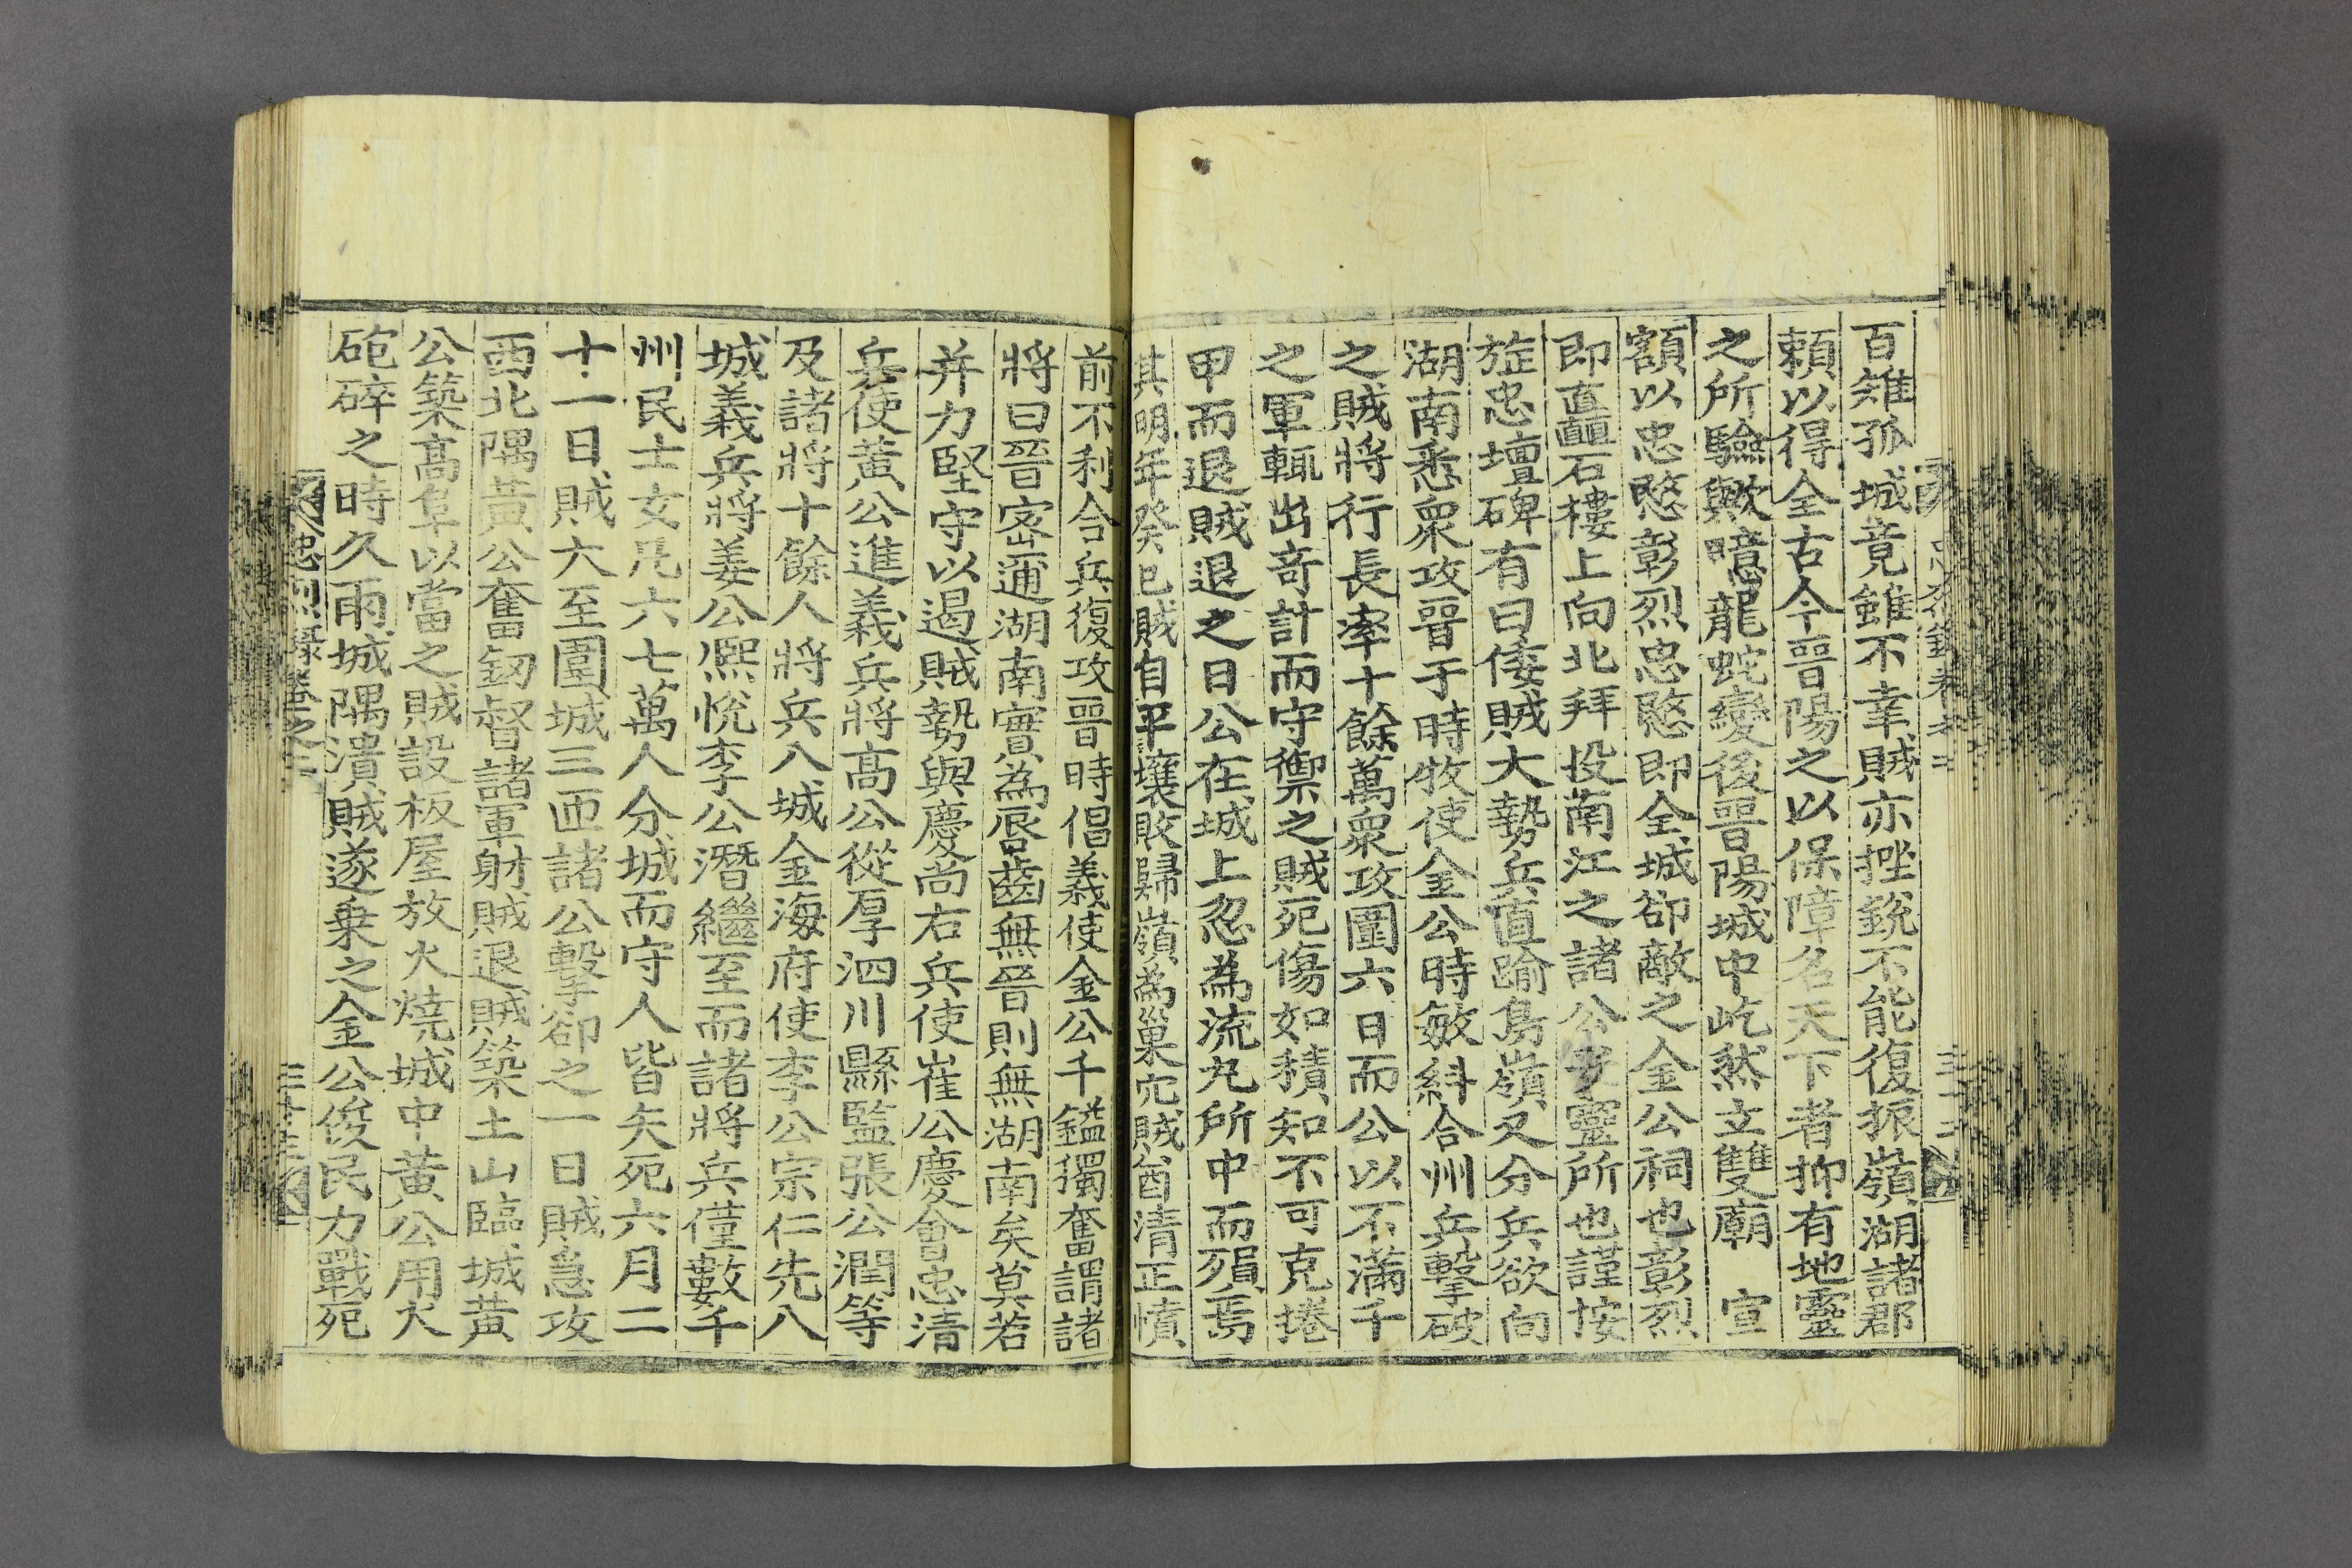 百雉孤城竟雖不幸賊亦挫銳不能復振嶺湖諸郡
頼以得全古今晉陽之以保障名天下者抑有地靈
之所驗歟噫龍蛇變後晋陽城中屹然立雙廟 宣
額以忠愍彰烈忠愍即全城卻敵之金公祠也彰烈
即矗石樓上向北拜投南江之諸公靈所也謹按
旌忠壇碑有曰倭賊大勢兵直踰鳥嶺又分兵欲向
湖南悉衆攻晋于時牧使金公時敏糾合州兵擊破
之賊將行長率十餘萬衆攻圍六日而公以不滿千
之軍輒出奇計而守禦之賊死傷如積知不可克捲
甲而退賊退之日公在城上忽為流丸所中而殞焉
其明年癸巳賊自平壤敗歸嶺為巢穴賊酋清正憤
前不利合兵復攻晋時倡義使金公千鎰獨奮謂諸
將曰晉密邇湖南實為唇齒無晉則無湖南矣莫若
并力堅守以遏賊勢與慶尚右兵使崔公慶會忠清
兵使黃公進義兵將高公從厚泗川縣監張公潤等
及諸將十餘人將兵八城金海府使李公宗仁先八
城義兵將姜公熙悅李公潛繼至而諸將兵僅數千
州民士女凡六七萬人分城而守人皆矢死六月二
十一日賊六至圍城三匝諸公擊卻之一日賊急攻
西北隅黃公奮劒督諸軍射賊退賊築土山臨城黃
公築高阜以當之賊設板屋放火燒城中黃公用大
砲碎之時久雨城隅潰賊遂乗之金公俊民力戰死
忠烈錄卷之二
三十三